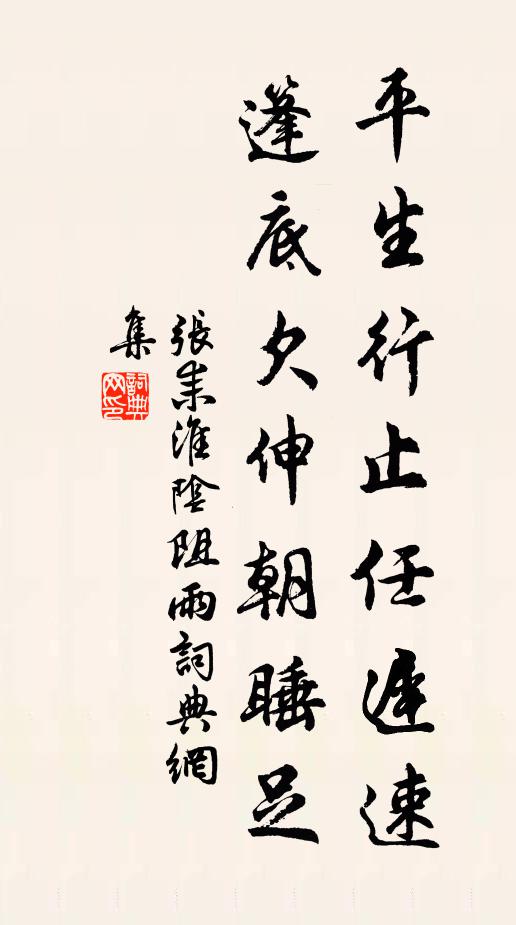 平生行止任遲速
篷底欠伸朝睡足
張耒淮陰阻雨詞典網
集
詞典网印